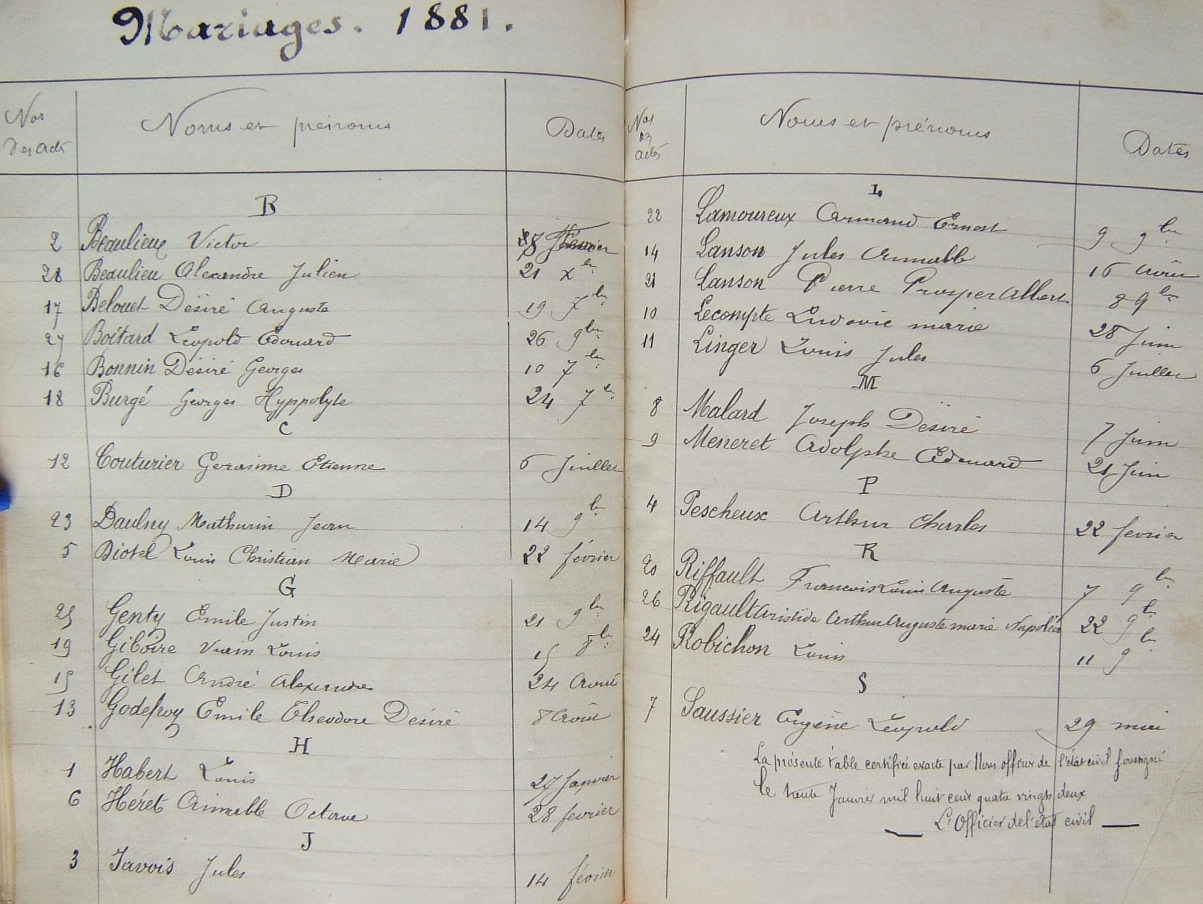 Mariages. 1881.
Nos des acts Noms et prénoms Dates
B
2 Beaulieux Victor
28 Beaulieu Alexandre Julien 21 Xbre
17 Belouet Désiré Auguste 19 7bre
27 Boitard Léopold Edouard 26 9bre
16 Bonnin Désiré Georges 10 7bre
18 Burgé Georges Hyppolyte 24 7bre
C
12 Couturier Gerasime Etienne 6 Juillet
D
23 Daulny Mathurin Jean 14 9bre
5 Diotel Louis Christian Marie 22 février
G
25 Genty Emile Justin 21 9bre
19 Giboire Vrain Louis 15 8bre
15 Gilet André Alexandre 24 Août
13 Godefroy Emile Theodore Désiré 8 Août
H
1 Habert Louis 27 Janvier
6 Héret Aimable Octave 28 fevrier
J
3 Javois Jules 14 février
Nos des actes Noms et prénoms Dates
L
22 Lamoureux Armand Ernest 9 9bre
14 Lanson Jules Aimable 16 Août
21 Lanson Pierre Prosper Albert 8 9bre
10 Lecompte Ludovic marie 28 Juin
11 Linger Louis Jules 6 Juillet
M
8 Malard Joseph Désiré 7 Juin
9 Meneret Adolphe Edouard 21 Juin
P
4 Pescheux Arthur Charles 22 fevrier
R
20 Riffault Francois Louis Auguste 7 9bre
26 Rigault Aristide Arthur Auguste marie Napoléon 22 9bre
24 Robichon Louis 11 9bre
S
7 Saussier Eugène Léopold 29 mai
La présente table certifiée exacte par Nous officier de l'état civil soussigné
le trente Janvier mil huit cent quatre vingt deux
L'Officier de l'état civil